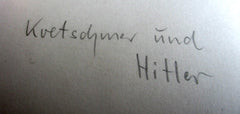 Kretschmer und
Hitler